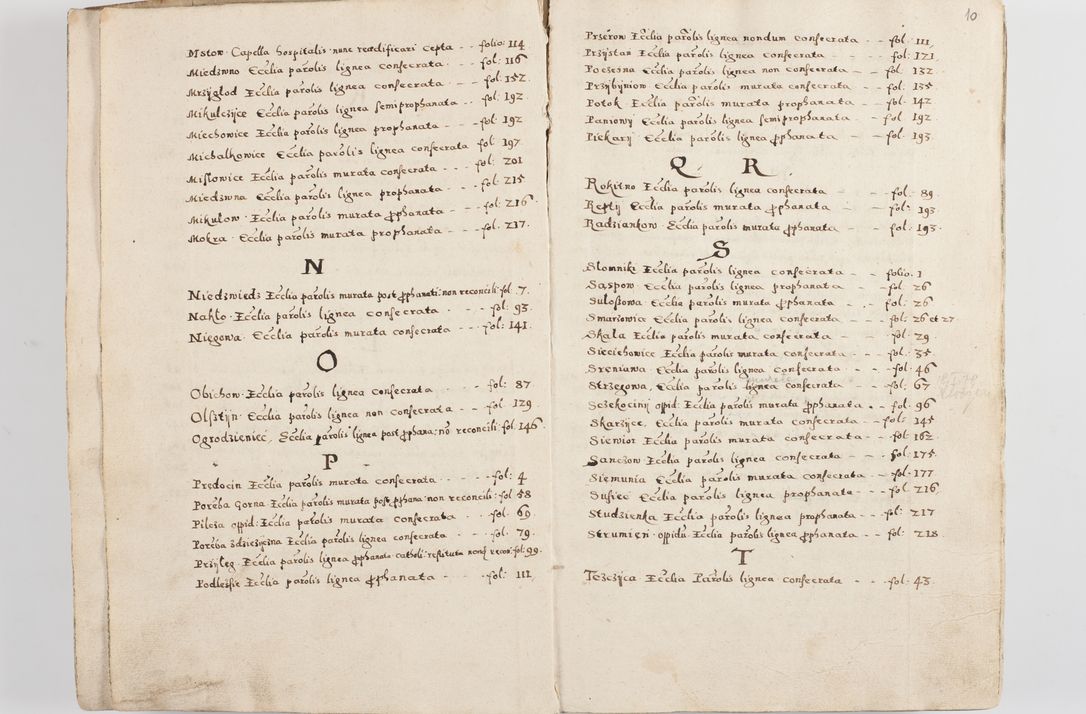 Mstow. Capella hospitalis nunc reædificari cepta - - folio 114
Miedzwno Ecclia parolis lignea consecrata - - - fol: 116
Mrzygłod Ecclia parolis lignea consecrata - - - fol: 152
Mikulczyce Ecclia parolis lignea semiprophanata - - fol: 192
Miechowice Ecclia parolis lignea prophanata - - fol: 192
Michalkowice Ecclia parolis lignea consecrata fol. 197
Mislowice Ecclia parolis murata consecrata - - fol: 201
Miedzwna Ecclia parolis lignea prophanata - - fol: 215
Mikułow. Ecclia parolis murata pphanata - - - fol: 216
Mokra. Ecclia parolis murata prophanata - - - fol. 217.
N
Niedzwiedz Ecclia parolis murata post pphanati: non reconcili: fol. 7.
Nakło. Ecclia parolis lignea consecrata - - - fol: 93.
Niegowa. Ecclia parolis murata consecrata - - - fol: 141.
O
Obichow. Ecclia parolis lignea consecrata - - - - fol: 87
Olsztyn. Ecclia parolis lignea non consecrata - - - fol: 129
Ogrodzieniec, Ecclia parolis lignea post pphana: nō reconcili: fol. 146
P
Prędocin Ecclia parolis murata consecrata - - - - fol: 4
Poręba Gorna Ecclia parolis murata post pphana: non reconcili: fol 58
Pilcza oppid: Ecclia parolis murata consecrata - - - fol. 69.
Poręba zdzieżyczna Ecclia parolis lignea consecrata - - - fol. 79.
Przyłęg. Ecclia parolis lignea pphanata catholi: restituta recon: fol: 99.
Podlesfie Ecclia parolis lignea pphanata - - - fol: 111,
10
Przerow Ecclia parolis lignea nondum consecrata - - - fol. 111,
Przystan Ecclia parolis lignea consecrata - - - fol. 121.
Poczesna Ecclia parolis lignea non consecrata - - - fol. 132.
Przybyniow Ecclia parolis murata consecrata - - - fol. 135
Potok. Ecclia parolis murata prophanata - - - fol. 142
Paniowy Ecclia parolis lignea semiprophanata - - - fol. 192
Piekary. Ecclia parolis lignea pphanata - - - fol. 193.
Q R
Rokitno Ecclia parolis lignea consecrata - - - fol. 89.
Repty Ecclia parolis murata pphanata - - - fol: 193
Radziankow. Ecclia parolis murata pphanata - - fol: 193.
S
Slomniki Ecclia parolis lignea consecrata - - folio. 1
Saspow Ecclia parolis lignea prophanata - - - fol. 26
Sułoszowa Ecclia parolis murata pphanata - . - fol. 26
Smarzowia Ecclia parolis lignea consecrata - - - fol: 26 et 27
Skala Ecclia parolis murata consecrata - - - fol. 29.
Sieciechowice Ecclia parolis murata consecrata - - - fol. 35
Sreniawa Ecclia parolis lignea consecrata - - - fol: 46
Strzegowa, Ecclia parolis lignea consecrata - - - fol: 67
Sczekociny oppid: Ecclia parolis murata pphanata - - fol. 96
Skarżyce, Ecclia parolis murata consecrata - - fol: 145
Siewior Ecclia parolis murata consecrata - - fol: 162.
Sanczow Ecclia parolis lignea consecrata - - . fol: 175.
Siemunia Ecclia parolis murata consecrata - - fol: 177
Susiec Ecclia parolis lignea prophanata - - - fol. 216.
Studzienka Ecclia parolis lignea prophanata - - - fol. 217
Strumien. oppidu: Ecclia parolis lignea pphanata - - fol. 218.
T
Tczczyca Ecclia Parolis lignea consecrata - - - fol: 43.